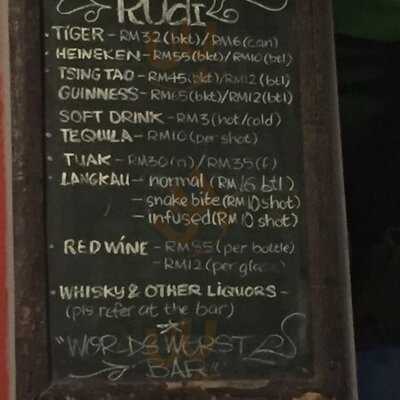 RUdi
• TIGER - RM32(bkt)/RM6(can)
• HEINEKEN - RM55(bkt)/RM10(btl)
TSINGTAO - RM45(bkt)/RM12(btl)
GUINNESS - RM65(bkt)/RM12(btl)
SOFT DRINK - RM3(hot/cold)
• TEQUILA - RM10(per shot)
• TUAK - RM30(n)/RM35(f)
• LANGKAU - normal (RM16 btl)
- snake bite (RM10 shot)
- infused(RM10 shot)
• RED WINE - RM85(per bottle)
- RM12(per glass)
• WHISKY & OTHER LIQUORS -
(pls refer at the bar)
"WORLDS WORST
BAR"